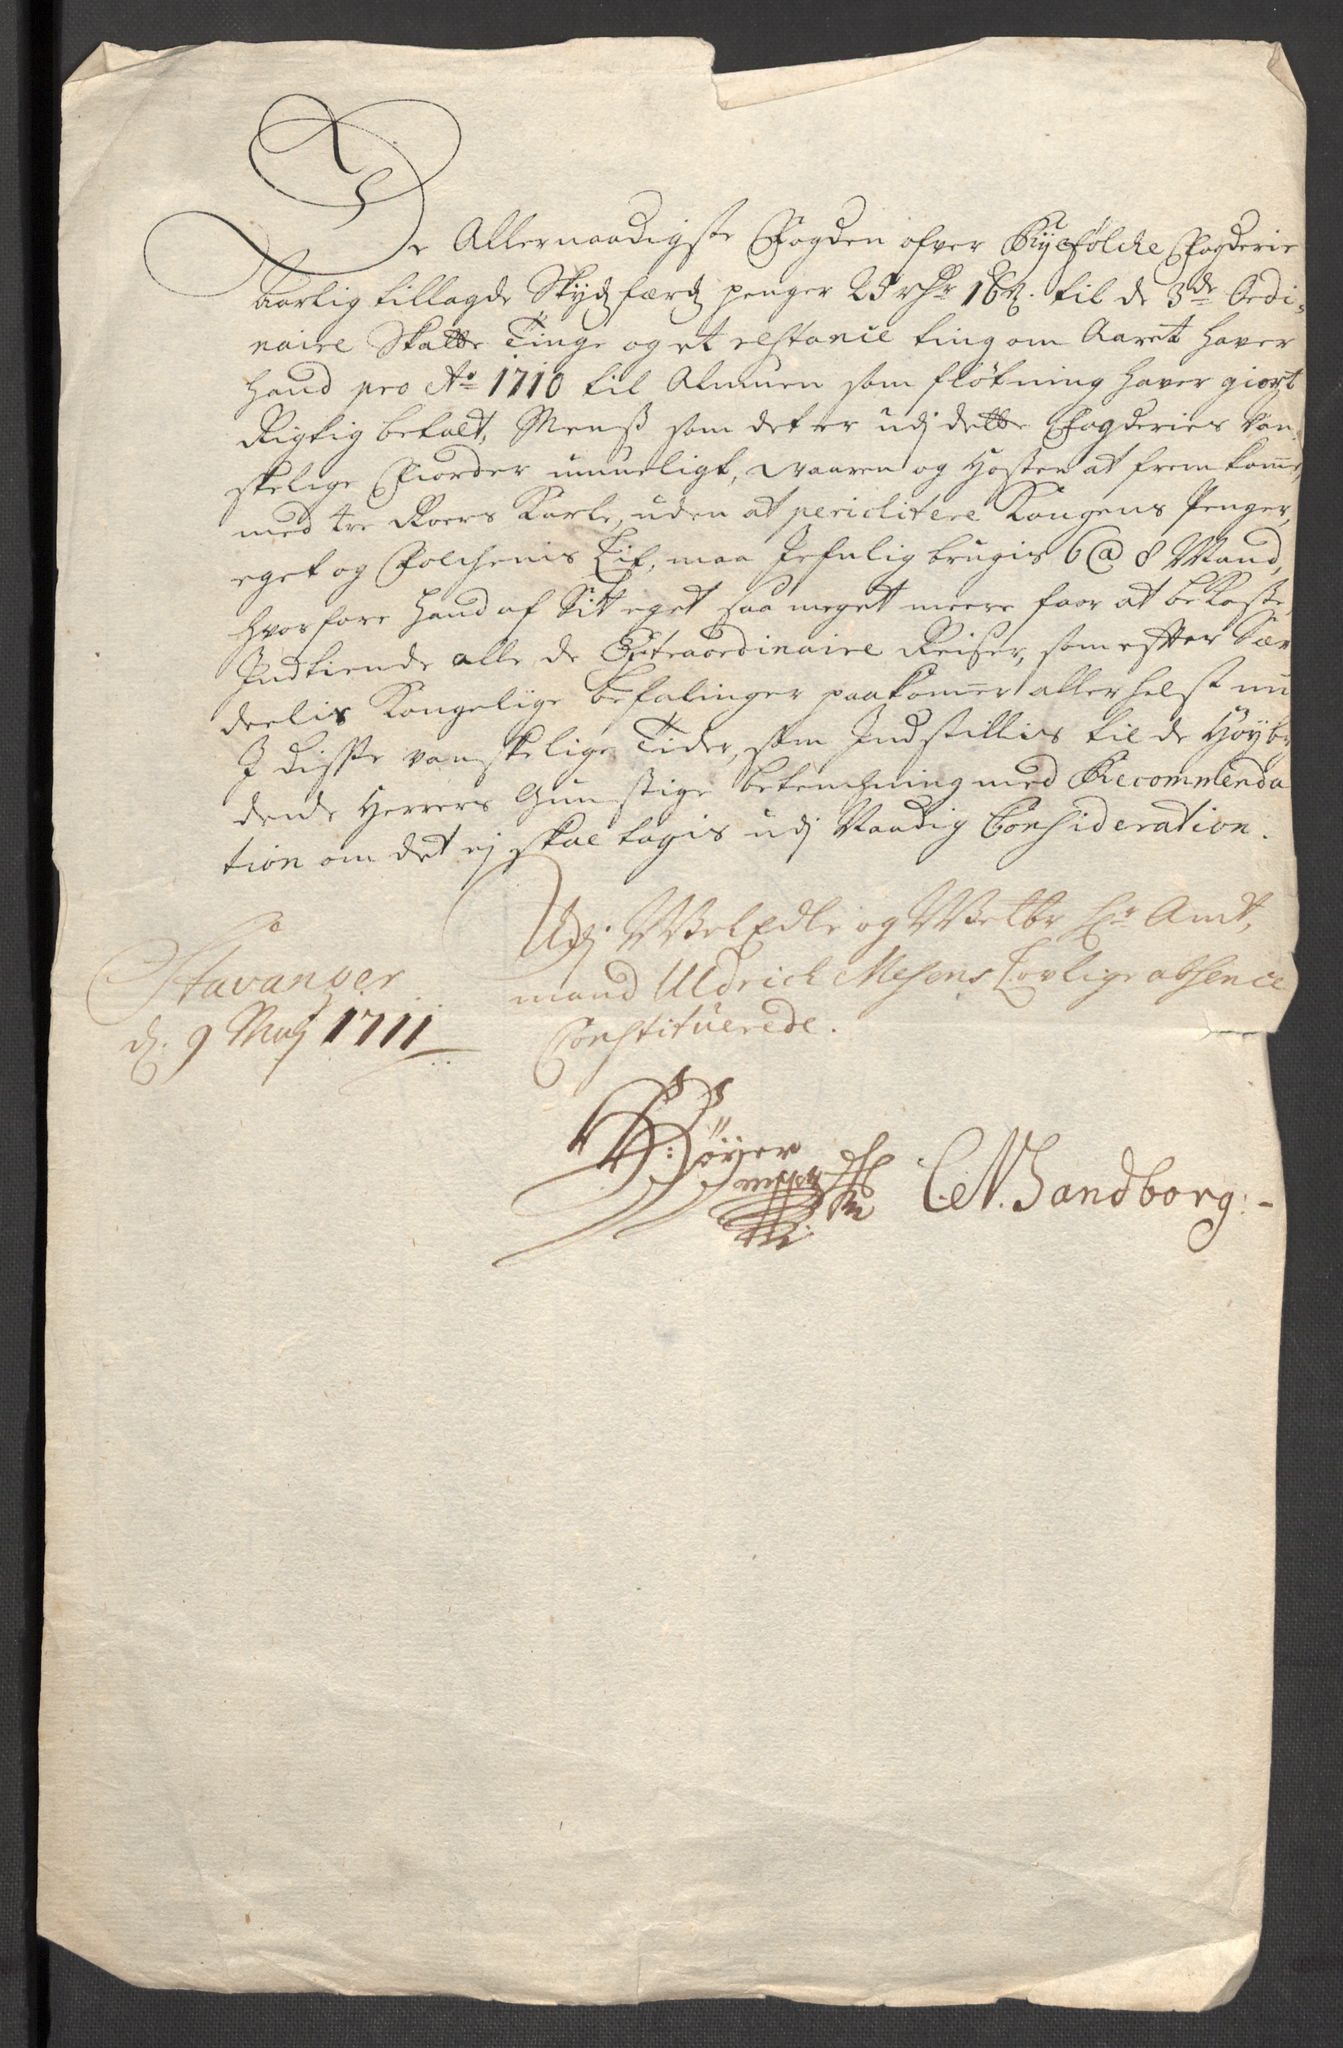 De Allernaadigste Fogden ofver Ryefölche Fogderie
Aarlig tillagde Skydtzfærdtz penger 25 rhr 16 s. til de 3de Ordi-
naire Skatte Tinge og et restance ting om Aaret haver
hand pro Ao 1710 til Almuen som flötning haver giort
Rigtig betalt, Menss som det er udj dette Fogderies van-
skelige Fiorder umueligt, Vaaren og Hösten at fremkomme,
med tre Roers Karle, uden at periclitere Kongens Penger,
eget og Folchenis Lif, maa Jefnlig brugis 6 @ 8 Mand,
hvorfore hand af Sit eget saa meget meere faar at bekoste,
Indtiende alle de Extraordinaire Reiser, som efter Sær
deelis Kongelige befalinger paakomer allerhelst nu
J disse vanskelige Tider, som Indstillis til de Höybr
dende Herrers Gunstige betenchning med Recommenda
tion om det ej skal tagis udj Naadig Consideration.
Udj WelEdle og Welbr Hr Amt,
mand Uldrich Mesons Lovlige absence
Constituerede.
Stavanger
d. 9 Maj 1711
Böyer
C. N. Sandborg: